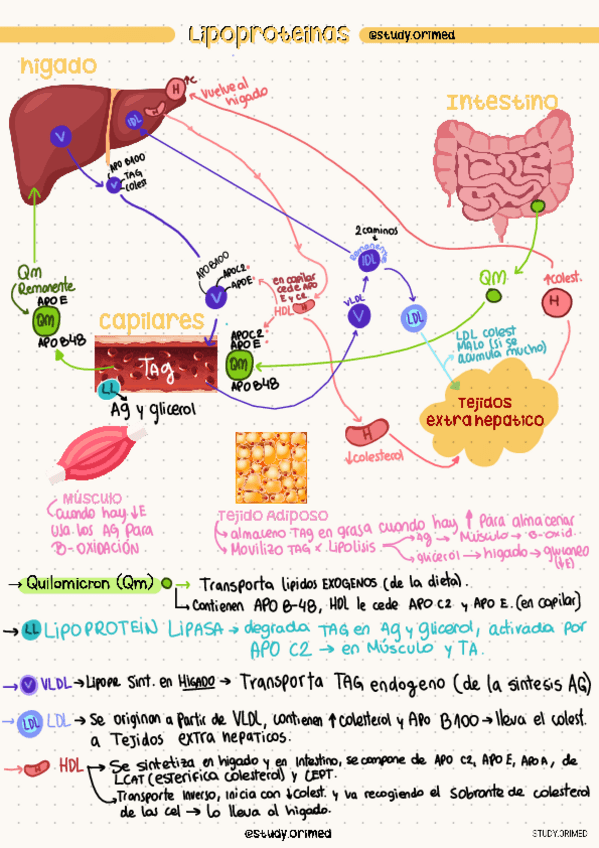 Lipoproteinas
@study.orimed
hígado
Intestino
↑C
H
Vuelve al
hígado
V
IDL
APO B100
TAG
Colest
V
2 caminos
Remanente
IDL
APO B100
APOC2
APOE
V
en capilar
cede APO
E y C2
HDL
H
Qm
(Remanente
APO E
Qm
APO B48
capilares
TAG
LL
Ag y glicerol
APOC2
APO E
Qm
APO B48
VLDL
V
LDL
Qm
↑colest.
H
LDL colest
MALO (si se
acumula mucho)
Tejidos
extrahepatico
H
↓colesterol
MÚSCULO
Cuando hay ↓E
Usa los AG para
B-OXIDACIÓN
Tejido Adiposo
almaceno TAG en grasa cuando hay ↑ para almacenar
Movilizo TAG x Lipolisis → Ag → Músculo → B-oxid.
glicerol → hígado → gluconeo
(↓E)
→ Quilomicron (Qm) → Transporta lipidos EXOGENOS (de la dieta).
Contienen APO B-48, HDL le cede APO C2 y APO E. (en capilar)
→ LL LIPOPROTEIN LIPASA → degrada TAG en Ag y glicerol, activada por
APO C2 → en Músculo y TA.
→ V VLDL → Lipopr Sint. en HIGADO → Transporta TAG endogeno (de la sintesis AG)
→ LDL LDL → Se originan a partir de VLDL, contienen ↑colesterol y APO B100 → lleva el colest.
a Tejidos extra hepaticos.
→ H HDL → Se sintetiza en hígado y en intestino, se compone de APO C2, APO E, APO A, de
LCAT (esterifica colesterol) y CEPT.
Transporte inverso, inicia con ↓colest. y va recogiendo el sobrante de colesterol
de las cel → lo lleva al hígado.
@study.orimed
STUDY.ORIMED